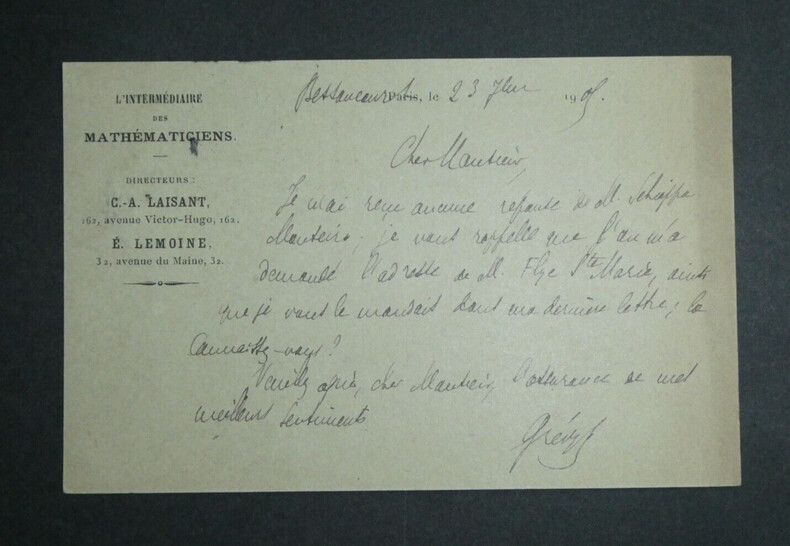 L'INTERMÉDIAIRE
DES
MATHÉMATICIENS.
DIRECTEURS :
C.-A. LAISANT,
162, avenue Victor-Hugo, 162.
É. LEMOINE,
32, avenue du Maine, 32.
Bessancourt Paris, le 23 7bre 1905.
Cher Monsieur,
Je n'ai reçu aucune réponse de M. Schiappa
Monteiro, je vous rappelle que l'on m'a
demandé l'adresse de M. Flye Ste Marie, ainsi
que je vous le mandais dans ma dernière lettre; la
connaissez-vous?
Veuillez agréer, cher Monsieur, l'assurance de mes
meilleurs sentiments
Grévy